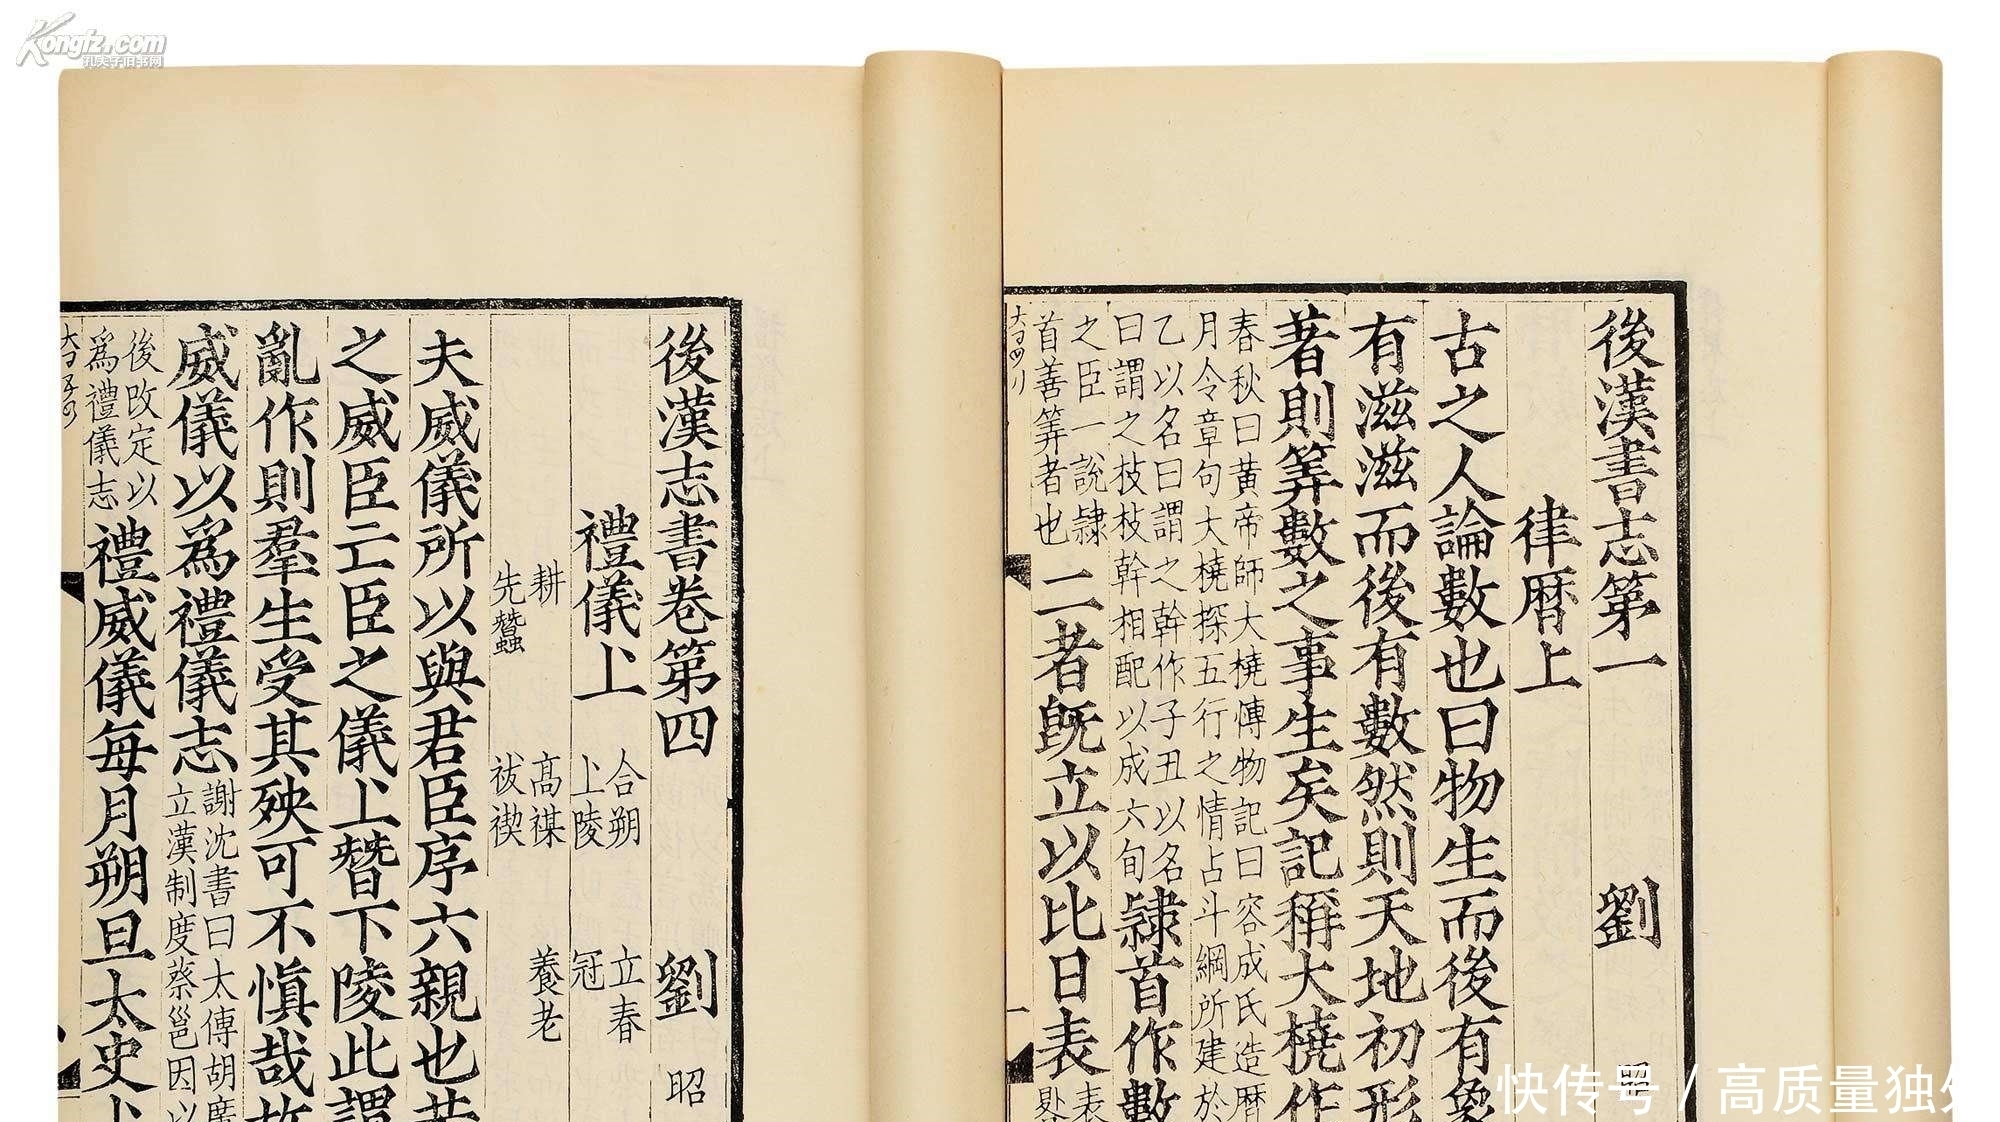 Kongfz.com
孔夫子旧书网
後漢書志第一 劉 昭
律暦上
古之人論數也曰物生而後有象
有滋滋而後有數然則天地初形
著則筭數之事生矣記稱大橈作
春秋曰黃帝師大橈博物記曰容成氏造暦
月令章句大橈探五行之情占斗綱所建於
乙以名曰謂之幹作子丑以名
曰謂之枝枝幹相配以成六旬
隷首作數
之臣一說隷
首善筭者也
二者旣立以比日表
表
後漢志書卷第四 劉 昭
禮儀上
合朔 立春
上陵 冠
耕 高禖 養老
先蠶 祓禊
夫威儀所以與君臣序六親也若
之威臣亡臣之儀上替下陵此謂
亂作則羣生受其殃可不慎哉故
威儀以爲禮儀志
謝沈書曰太傅胡廣
立漢制度蔡邕因以
後改定以
爲禮儀志
禮威儀每月朔旦太史上
快传号 / 高质量独处